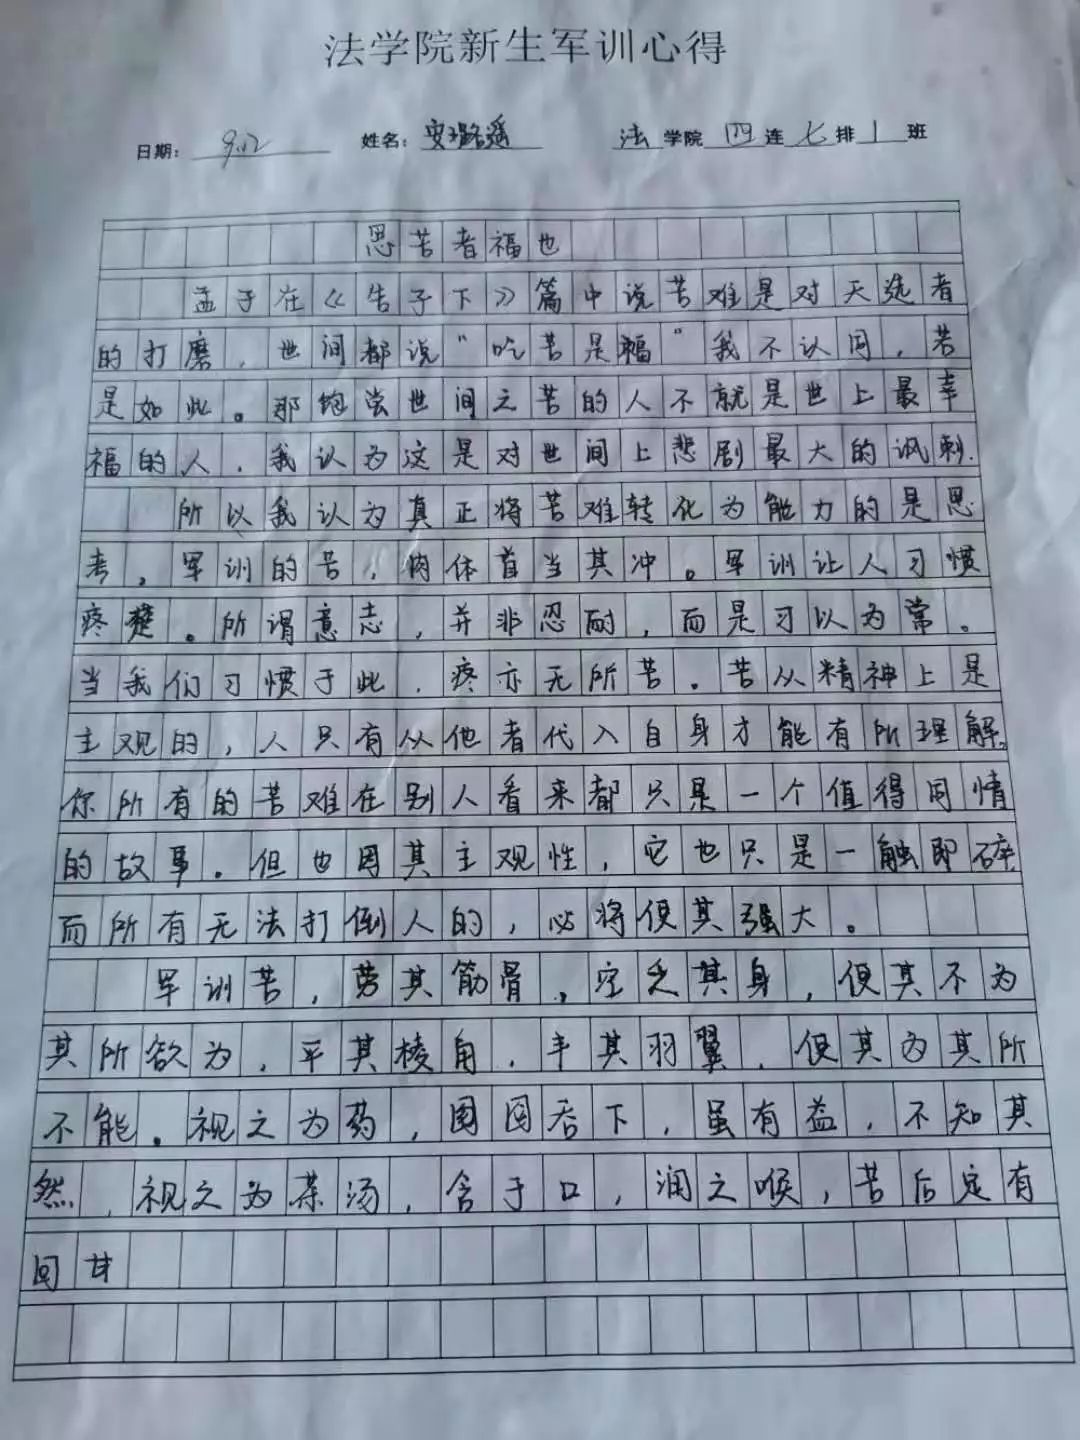 法学院新生军训心得
日期: 9.12 姓名: 安璐遥 法 学院 四 连 七 排 1 班
思苦者福也
孟子在《告子下》篇中说苦难是对天选者
的打磨，世间都说“吃苦是福”我不认同，若
是如此。那饱尝世间之苦的人不就是世上最幸
福的人，我认为这是对世间上悲剧最大的讽刺.
所以我认为真正将苦难转化为能力的是思
考，军训的苦，肉体首当其冲。军训让人习惯
疼楚。所谓意志，并非忍耐，而是习以为常。
当我们习惯于此，疼亦无所苦。苦从精神上是
主观的，人只有从他者代入自身才能有所理解。
你所有的苦难在别人看来都只是一个值得同情
的故事。但也因其主观性，它也只是一触即碎
而所有无法打倒人的，必将使其强大。
军训苦，劳其筋骨，空乏其身，使其不为
其所欲为，平其棱角，丰其羽翼，使其为其所
不能。视之为药，囫囵吞下，虽有益，不知其
然，视之为茶汤，含于口，润之喉，苦后定有
回甘